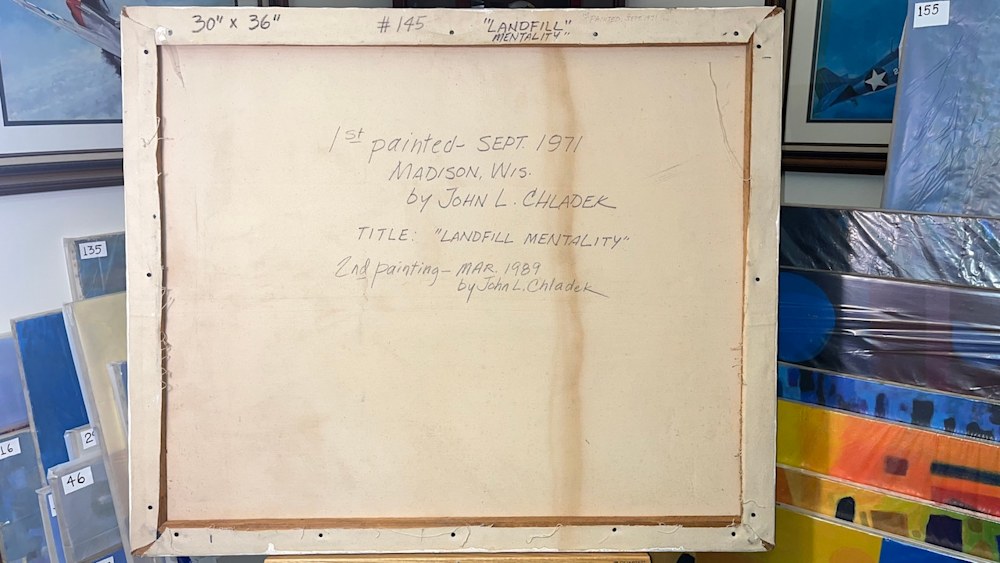 30" x 36"
#145
"LANDFILL"
MENTALITY"
155
1st painted- SEPT. 1971
MADISON, WIS.
by JOHN L. CHLADEK
TITLE: "LANDFILL MENTALITY"
2nd painting- MAR. 1989
by John L. Chladek
135
16
2
46